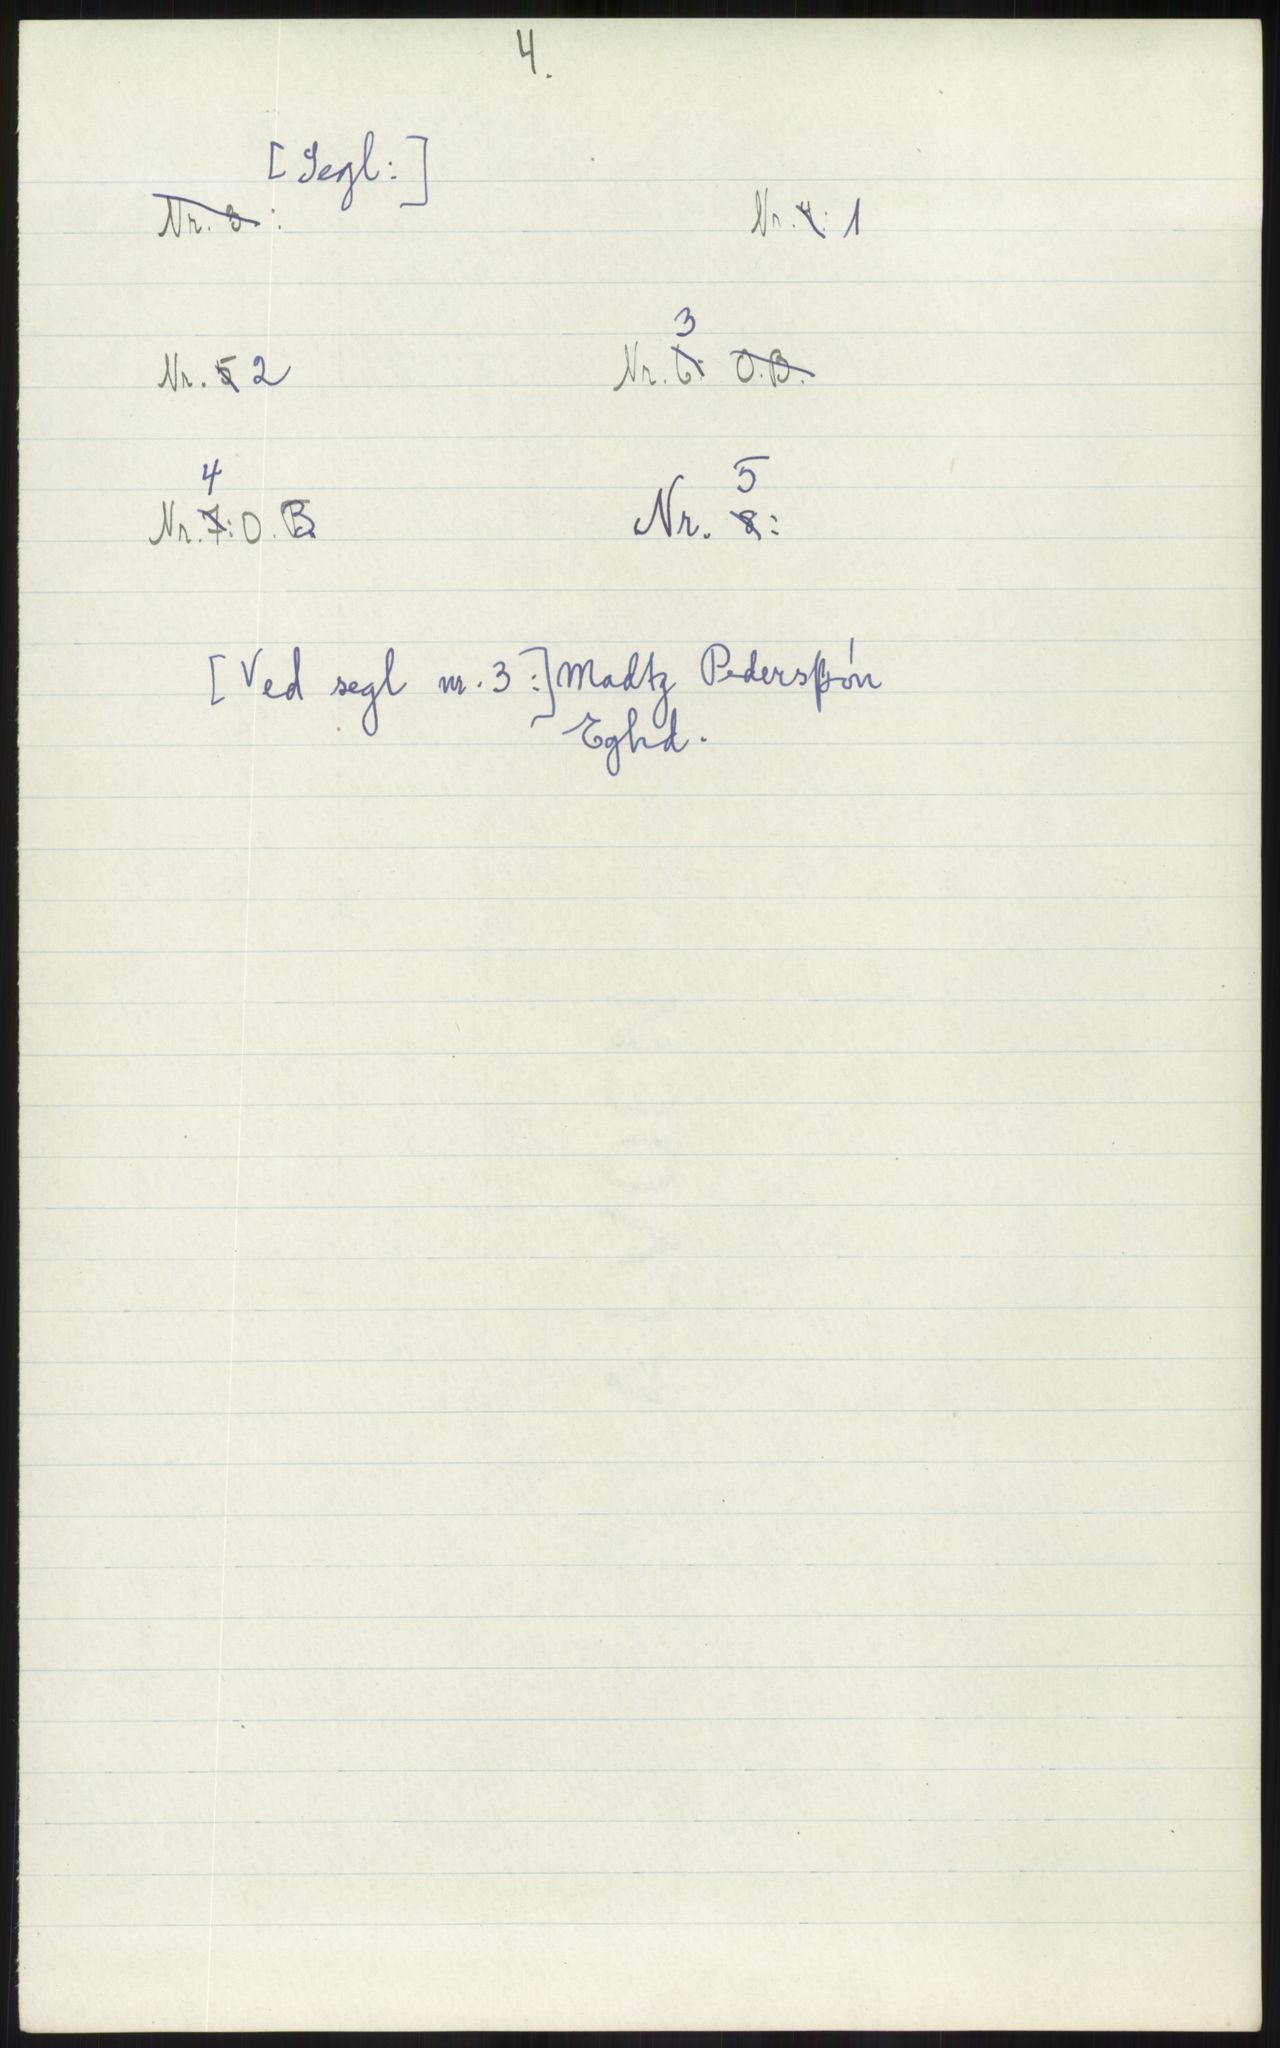 4.
[Segl:]
Nr. 3: Nr. 4: 1
Nr. 5 2 Nr. 6: 3 O.B.
Nr. 7: 4 O. B. Nr. 8: 5
[Ved segl nr. 3:] Madtz Pederssøn
Eghd.